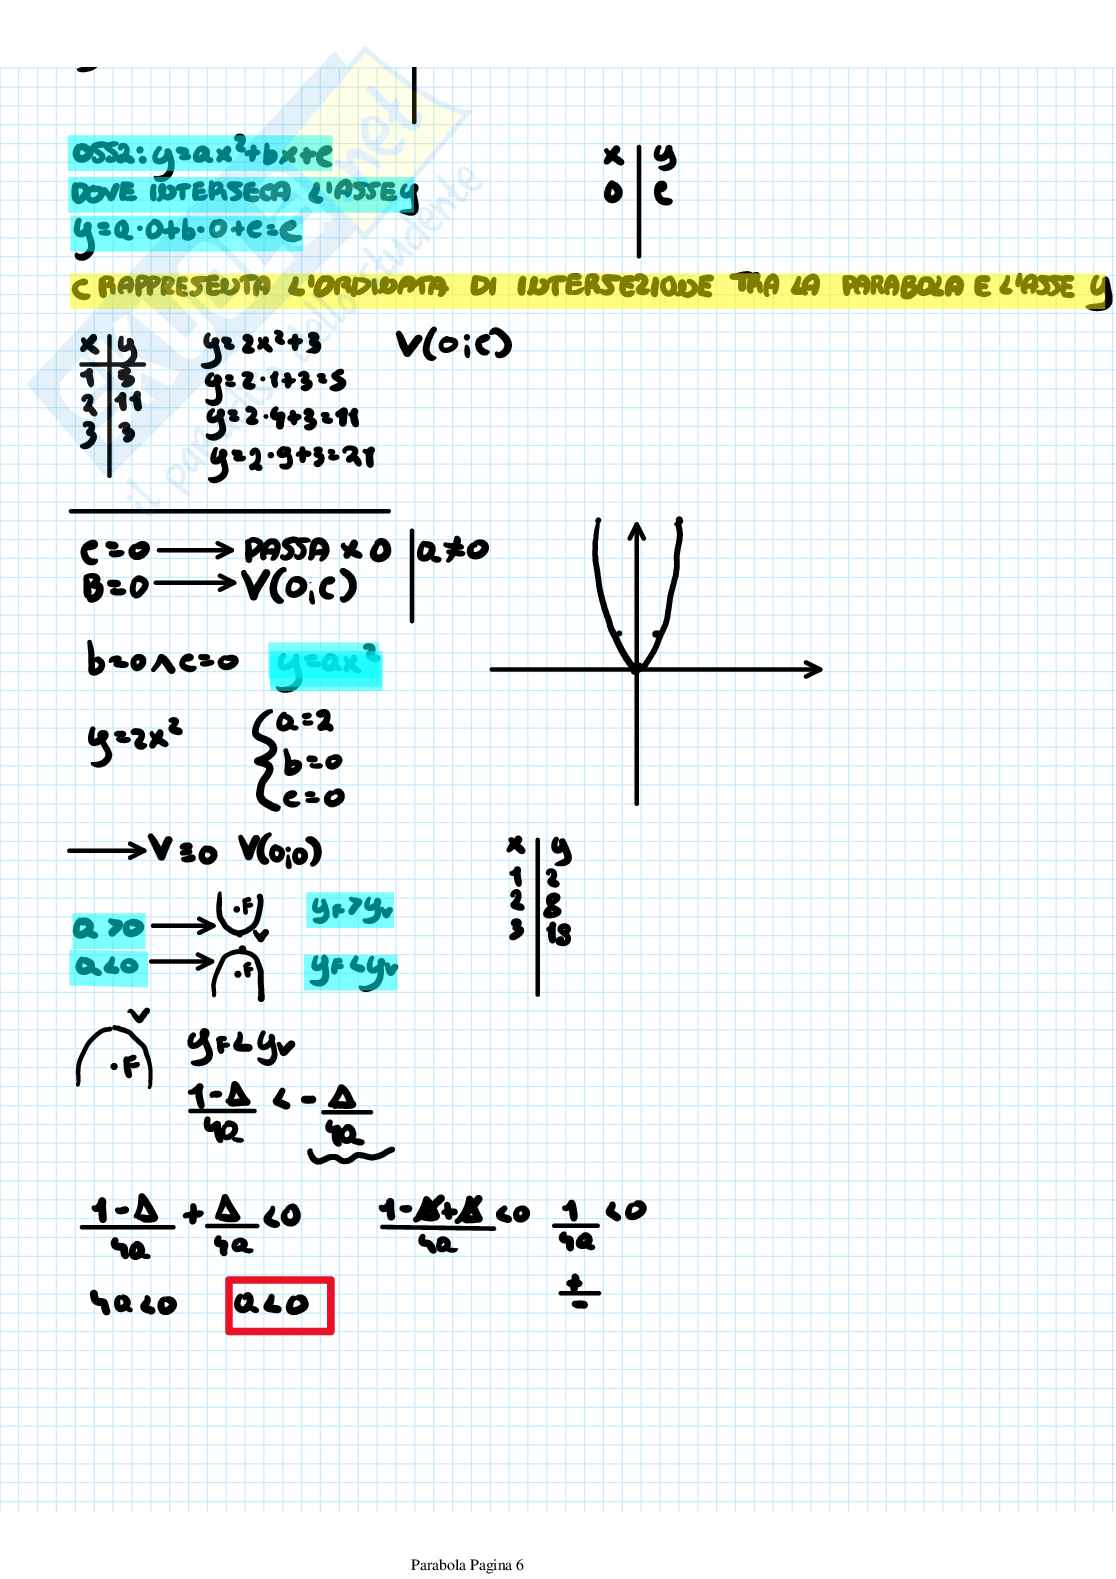 OSS2: y=ax²+bx+c
DOVE INTERSECA L'ASSE y
y=a·0+b·0+c=c
x | y
0 | c
C RAPPRESENTA L'ORDINATA DI INTERSEZIONE TRA LA PARABOLA E L'ASSE y
x | y
1 | 5
2 | 11
3 | 3
y=2x²+3
y=2·1+3=5
y=2·4+3=11
y=2·9+3=21
V(0;c)
c=0 → PASSA x 0 | a≠0
B=0 → V(0;c)
b=0∧c=0 y=ax²
y=2x² { a=2
b=0
c=0
→ V≡0 V(0;0)
x | y
1 | 2
2 | 8
3 | 18
a>0 → .F V yF>yV
a<0 → .F yF<yV
V
.F
yF<yV
1-Δ/4a < -Δ/4a
1-Δ/4a + Δ/4a <0 1-Δ+Δ/4a <0 1/4a <0
+/-
4a<0 a<0
il paradiso dello studente
Parabola Pagina 6